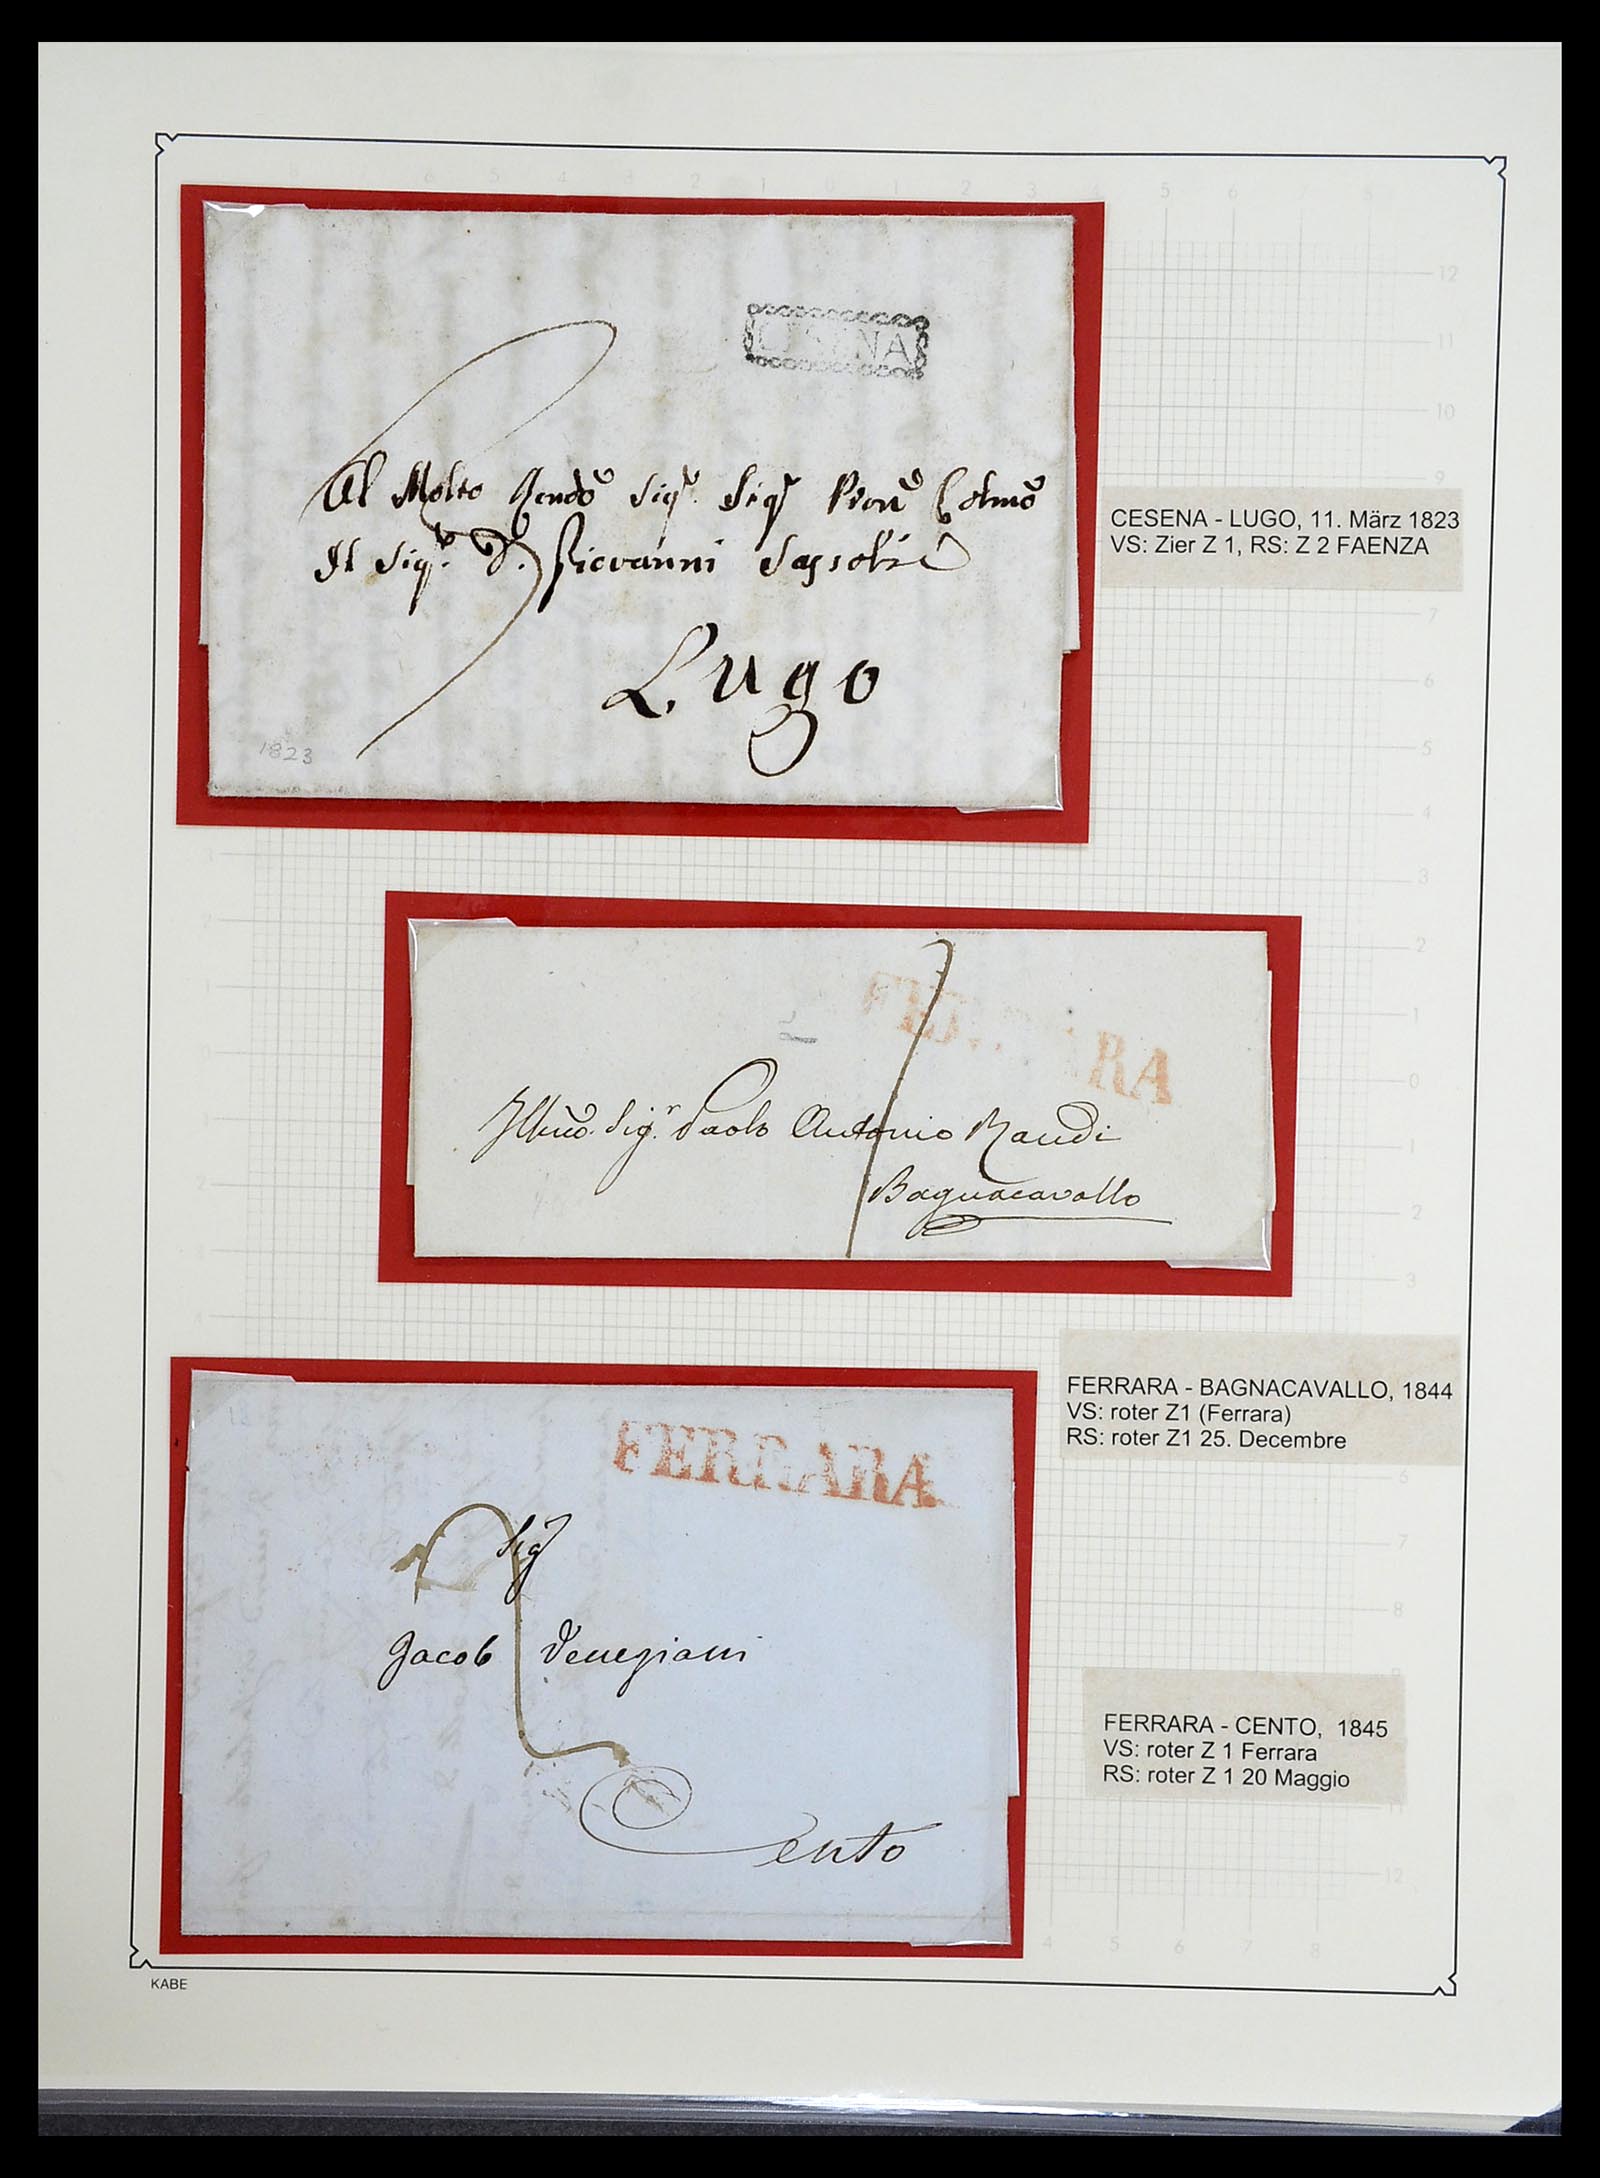 CESENA
Al Molto Rendo Sigr. Sigr Pron Colmo
Il Sigr. D. Giovanni Sassoli
Lugo
1823
CESENA - LUGO, 11. März 1823
VS: Zier Z 1, RS: Z 2 FAENZA
FERRARA
Illmo. Sigr. Paolo Antonio Randi
Bagnacavallo
FERRARA - BAGNACAVALLO, 1844
VS: roter Z1 (Ferrara)
RS: roter Z1 25. Decembre
FERRARA
Sigr
Jacob Venegiani
Cento
FERRARA - CENTO, 1845
VS: roter Z 1 Ferrara
RS: roter Z 1 20 Maggio
KABE